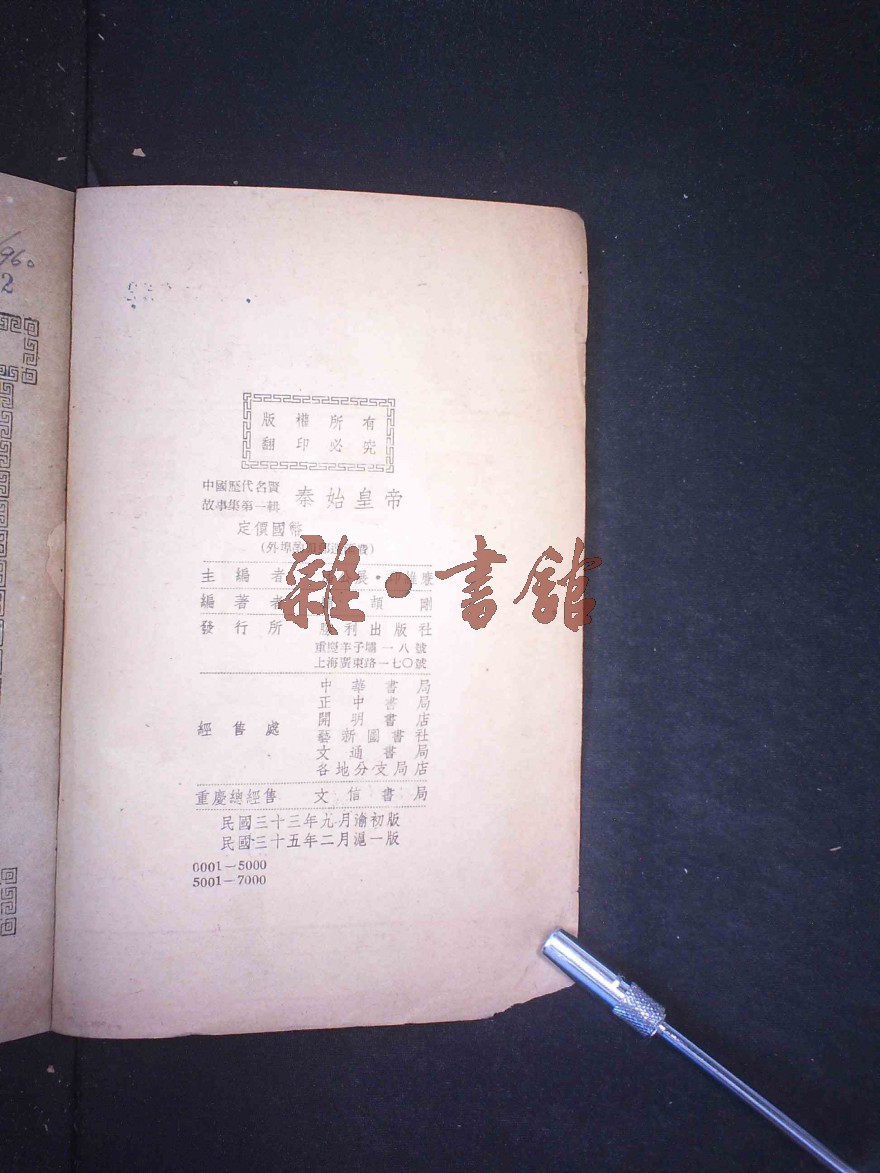 96。
2
版權所有
翻印必究
中國歷代名賢
故事集第一輯
秦始皇帝
定價國幣
(外埠
費)
主編者
印維廉
編著者
頡剛
發行所
勝利出版社
重慶羊子壩一八號
上海廣東路一七〇號
經售處
中華書局
正中書局
開明書店
藝新圖書社
文通書局
各地分支局店
重慶總經售 文信書局
民國三十三年九月渝初版
民國三十五年二月滬一版
0001—5000
5001—7000
雜·書館